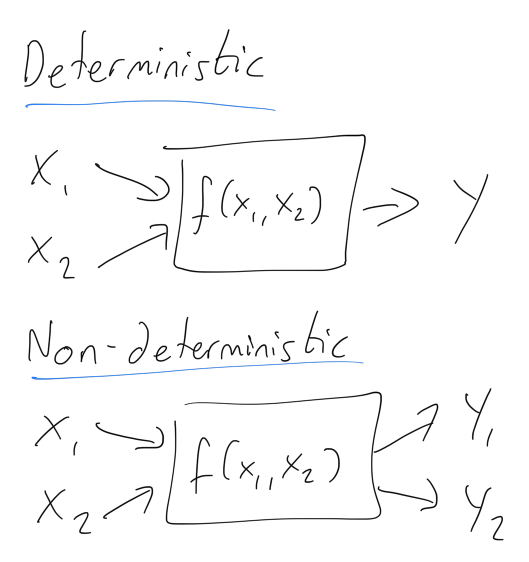 Deterministic
x₁
f(x₁, x₂)
y
x₂
Non-deterministic
x₁
y₁
f(x₁, x₂)
x₂
y₂